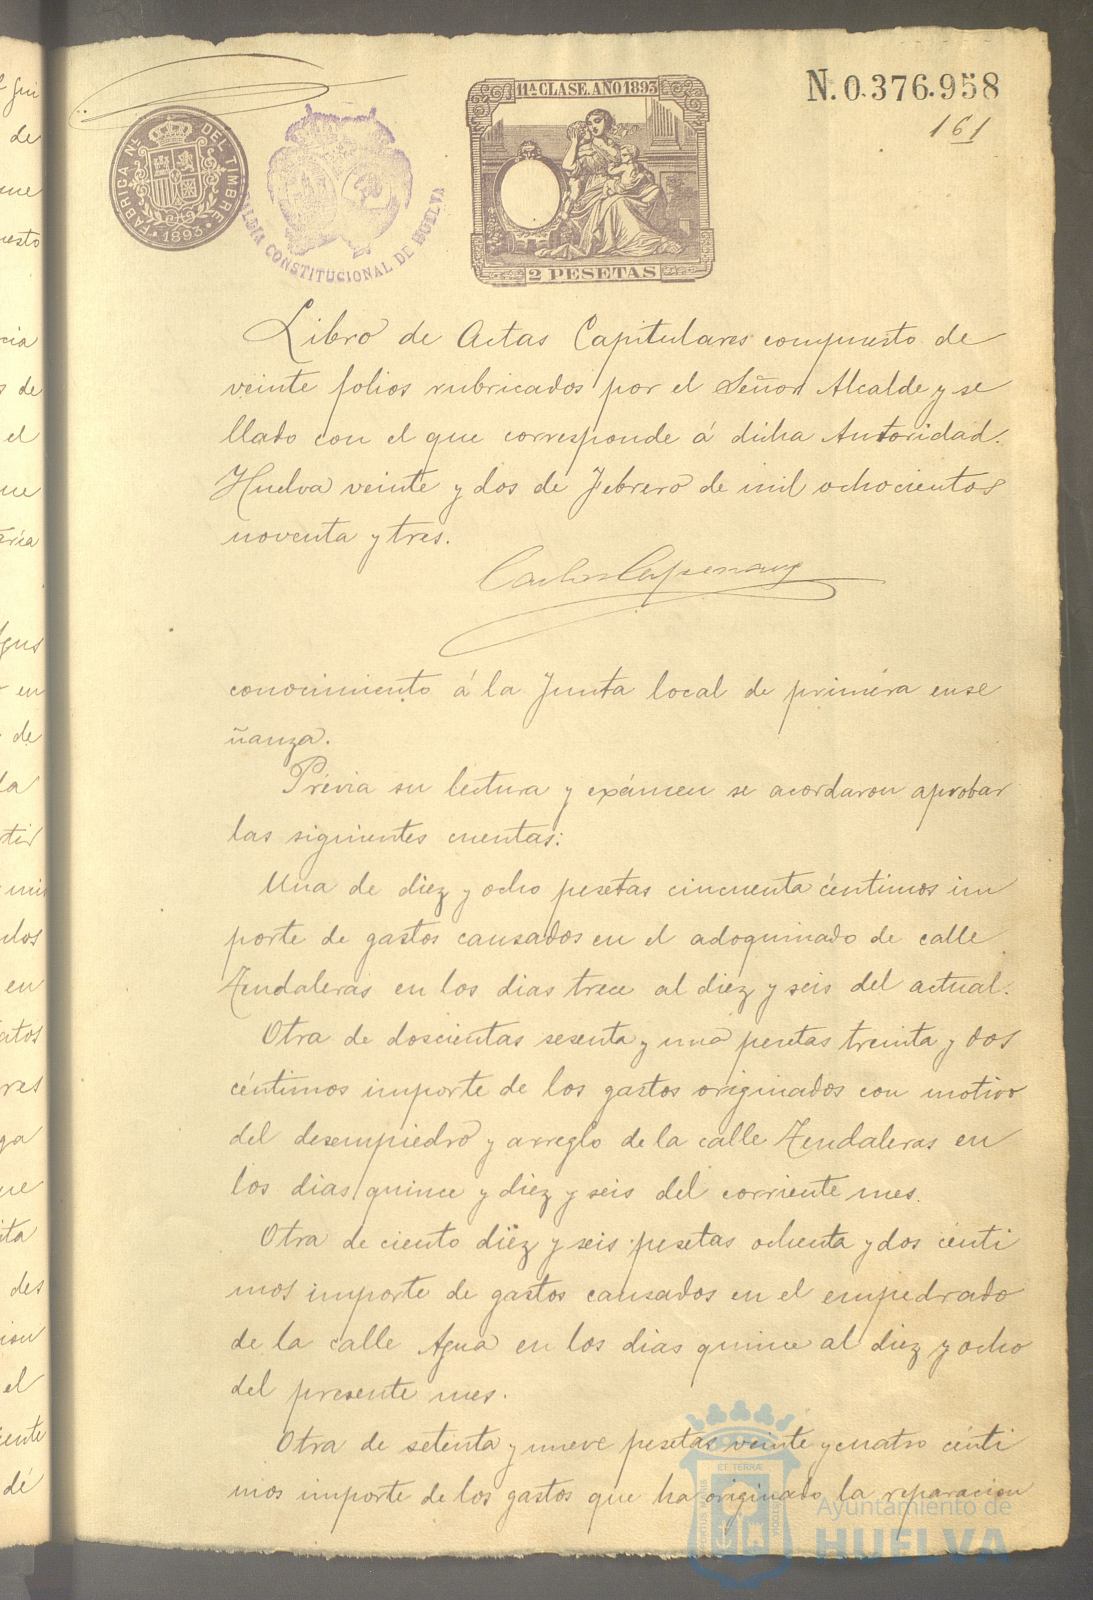 N. 0.376.958
161
11ª CLASE. AÑO 1893
FABRICA NL. DEL TIMBRE
1893
ALCALDÍA CONSTITUCIONAL DE HUELVA
2 PESETAS
Libro de Actas Capitulares compuesto de
veinte folios rubricados por el Señor Alcalde y se
llado con el que corresponde á dicha Autoridad.
Huelva veinte y dos de Febrero de mil ochocientos
noventa y tres.
conocimiento á la Junta local de primera ense
ñanza.
Prévia su lectura y exámen se acordaron aprobar
las siguientes cuentas:
Una de diez y ocho pesetas cincuenta céntimos im
porte de gastos causados en el adoquinado de calle
Zendaleras en los dias trece al diez y seis del actual.
Otra de doscientas sesenta y una pesetas treinta y dos
céntimos importe de los gastos originados con motivo
del desempiedro y arreglo de la calle Zendaleras en
los dias quince y diez y seis del corriente mes.
Otra de ciento diez y seis pesetas ochenta y dos cénti
mos importe de gastos causados en el empedrado
de la calle Agua en los dias quince al diez y ocho
del presente mes.
Otra de setenta y nueve pesetas veinte y cuatro cénti
mos importe de los gastos que ha originado la reparacion
Ayuntamiento de
HUELVA